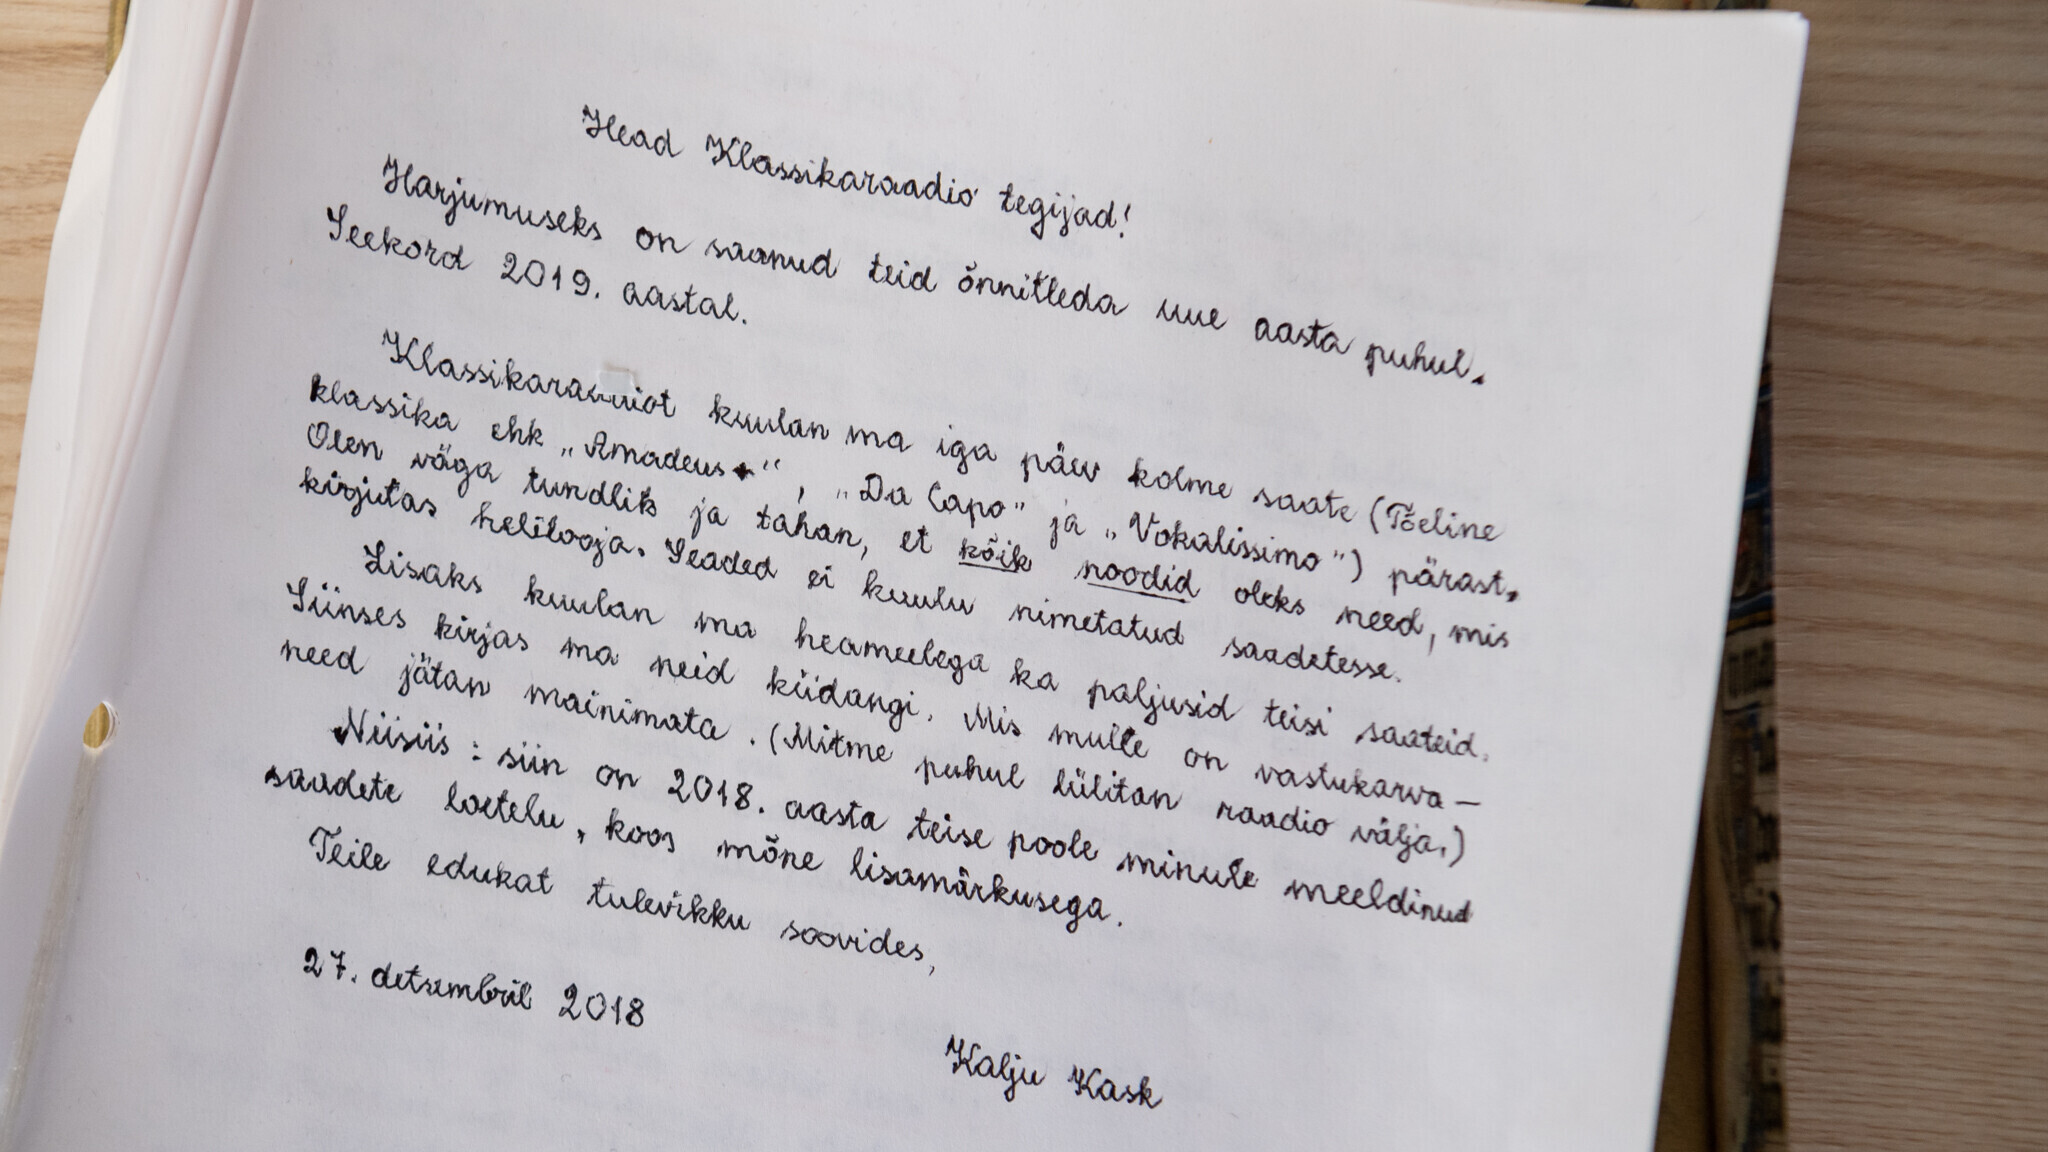 Head Klassikaraadio tegijad!
Harjumuseks on saanud teid õnnitleda uue aasta puhul.
Seekord 2019. aastal.
Klassikaraadiot kuulan ma iga päev kolme saate (Tõeline
klassika ehk „Amadeus“, „Da Capo” ja „Vokalissimo”) pärast.
Olen väga tundlik ja tahan, et kõik noodid oleks need, mis
kirjutas helilooja. Seaded ei kuulu nimetatud saadetesse.
Lisaks kuulan ma heameelega ka paljusid teisi saateid.
Siinses kirjas ma neid kiidangi. Mis mulle on vastukarva —
need jätan mainimata. (Mitme puhul lülitan raadio välja.)
Niisiis : siin on 2018. aasta teise poole minule meeldinud
saadete loetelu, koos mõne lisamärkusega.
Teile edukat tulevikku soovides,
27. detsembril 2018
Kalju Kask